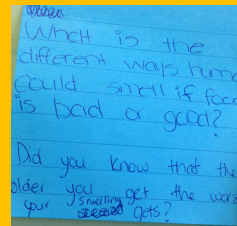 What is the
different ways huma
could smell if food
is bad or good?
Did you know that the
older you get the wors
your smelling gets?